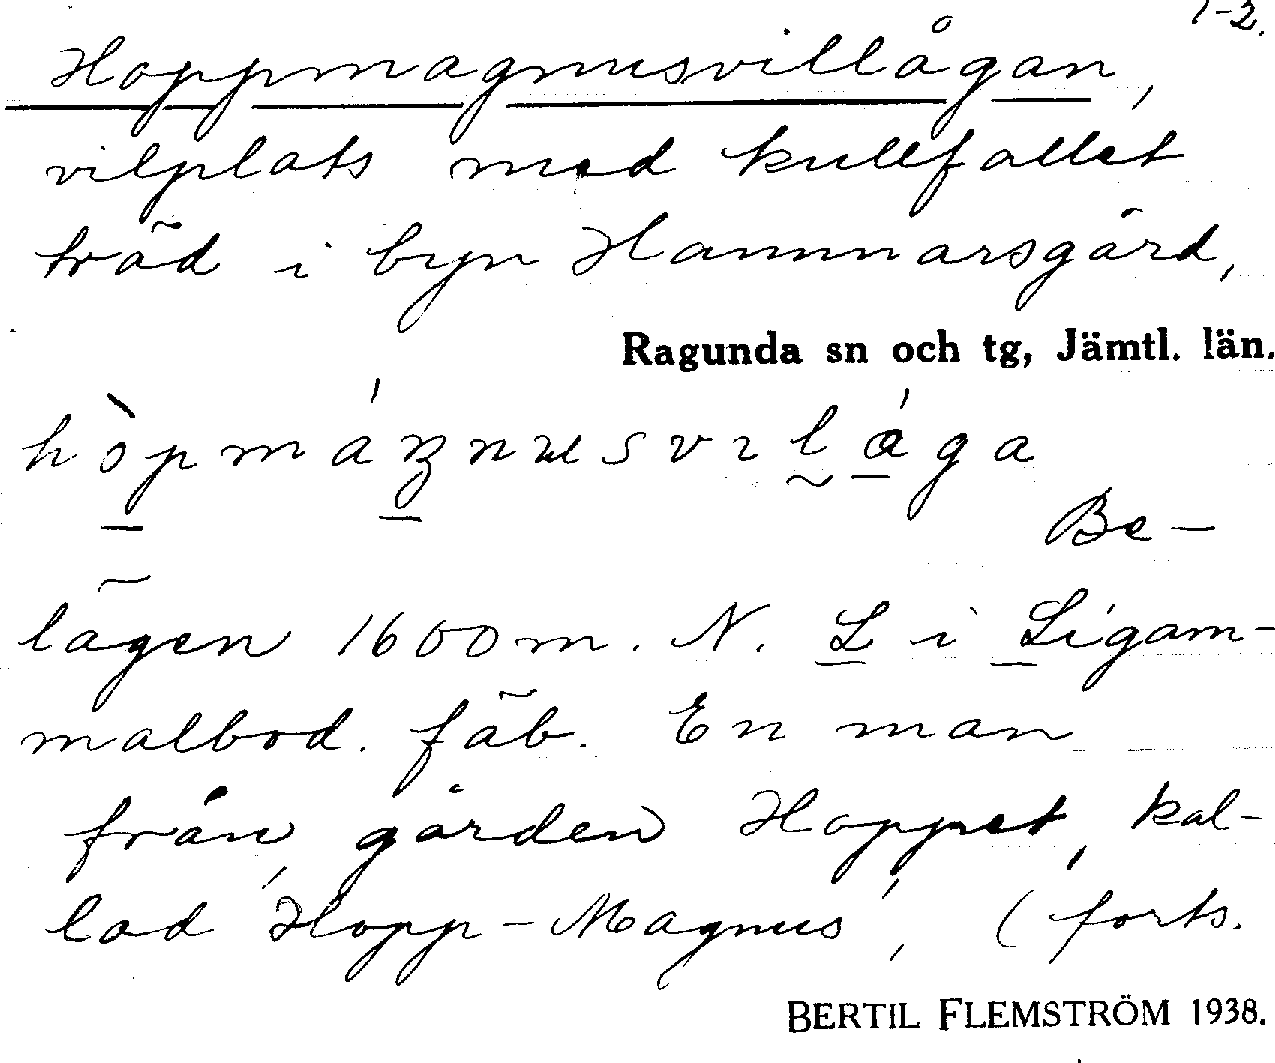 1-2.
Hoppmagnusvillågan,
vilplats med kullfallet
träd i byn Hammarsgård,
Ragunda sn och tg, Jämtl. län.
Be-
lägen 1600 m. N. L i Ligam-
malbod. fäb. En man
från gården Hoppet, kal-
lad 'Hopp-Magnus', (forts.
BERTIL FLEMSTRÖM 1938.